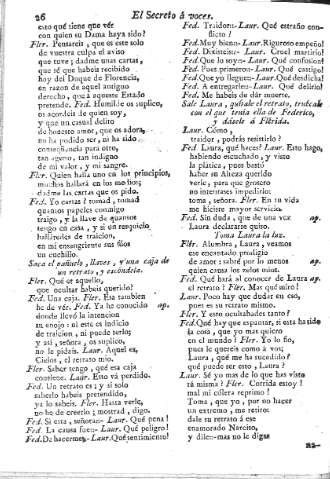 26 El Secreto á voces.
esto qué tiene que vér
con quien su Dama haya sido?
Fler. Pensareis, que os es este solo
de vuestra culpa el aviso
que tuve; dadme unas cartas,
que sé que habeis recibido
hoy del Duque de Florencia,
en razon de aquel antiguo
derecho, que á aqueste Estado
pretende. Fed. Humilde os suplico,
os acordeis de quien soy,
y que un casual delito
de honesto amor, que os adora,
no ha podido ser, ni ha sido
conseqüencia para otro,
tan ageno, tan indigno
de mi valor, y mi sangre.
Fler. Quien halla uno en los principios,
muchos hallará en los medios;
dadme las cartas que os pido.
Fed. Yo cartas? tomad, tomad
quantos papeles conmigo
traigo, y la llave de quantos
tengo en casa, y si un rasguño
hallareis de traicion,
en mi ensangriente sus filos
un cuchillo.
Saca el pañuelo, llaves, y una caja de
un retrato, y escondela.
Fler. Qué es aquello,
que ocultar habeis querido?
Fed. Una caja. Fler. Esa tambien
he de vér. Fed. Ya he conocido ap.
donde llevó la intencion
su enojo: ni este es indicio
de traicion, ni puede serlo;
y asi, señora, os suplico,
no le pidais. Laur. Aquel es,
Cielos, el retrato mio.
Fler. Saber tengo, qué esa caja
contiene. Laur. Esto vá perdido.
Fed. Un retrato es; y si solo
saberlo habeis pretendido,
ya lo sabeis. Fler. Hasta verle,
no he de creerlo; mostrad, digo.
Fed. Si esta, señora- Laur. Qué pena!
Fed. La causa fue- Laur. Qué peligro!
Fed. De hacerme- Laur. Qué sentimiento!
Fed. Traidor- Laur. Qué estraño conflicto!
Fed. Muy bien- Laur. Riguroso empeño!
Fed. Dixisteis- Laur. Cruel martirio!
Fed. Que lo soy- Laur. Qué confusion!
Fed. Pues primero- Laur. Qué castigo!
Fed. Que yo llegue- Laur. Qué desdicha!
Fed. A entregarle- Laur. Qué delirio!
Fed. Me habeis de dár muerte.
Sale Laura, quitale el retrato, truécale
con el que tenia ella de Federico,
y dásele á Flérida.
Laur. Cómo,
traidor, podrás resistirlo?
Fed. Laura, qué haces? Laur. Esto hago,
habiendo escuchado, y visto
la platica, pues bastó
haber su Alteza querido
verle, para que grosero
no intentases impedirlo:
toma, señora. Fler. En tu vida
me hiciste mayor servicio.
Fed. Sin duda, que de una vez ap.
Laura declararse quiso.
Toma Laura la luz.
Fler. Alumbra, Laura, veamos
ese encantado prodigio
de amor: sabré por lo menos ap.
quien causa los zelos mios.
Fed. Qué hará al conocer de Laura ap.
el retrato? Fler. Mas qué miro!
Laur. Poco hay que dudar en eso,
pues es su retrato mismo.
Fler. Y esto ocultabades tanto?
Fed. Qué hay que espantar, si esta ha sido
la cosa, que yo mas quiero
en el mundo? Fler. Yo lo fio,
pues le quereis como á vos:
Laura, qué me ha sucedido?
qué puede ser esto, Laura?
Laur. Sé yo mas de lo que has visto
tú misma? Fler. Corrida estoy!
mal mi cólera reprimo!
Toma, que yo, por no hacer
un extremo, me retiro:
dale su retrato á ese
enamorado Narciso,
y dile- mas no le digas